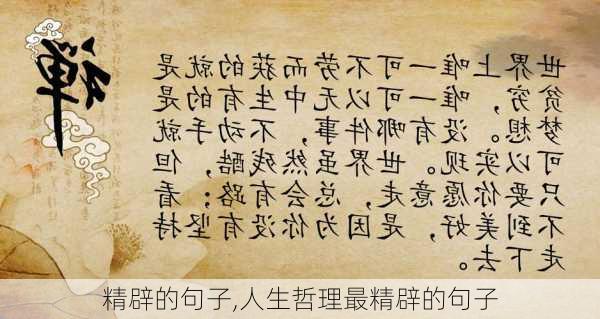 禅
世界上唯一可不劳而获的就是
贫穷，唯一可以无中生有的是
梦想。没有哪件事，不动手就
可以实现。世界虽然残酷，但
只要你愿意走，总会有路；看
不到美好，是因为你没有坚持
走下去。
精辟的句子,人生哲理最精辟的句子